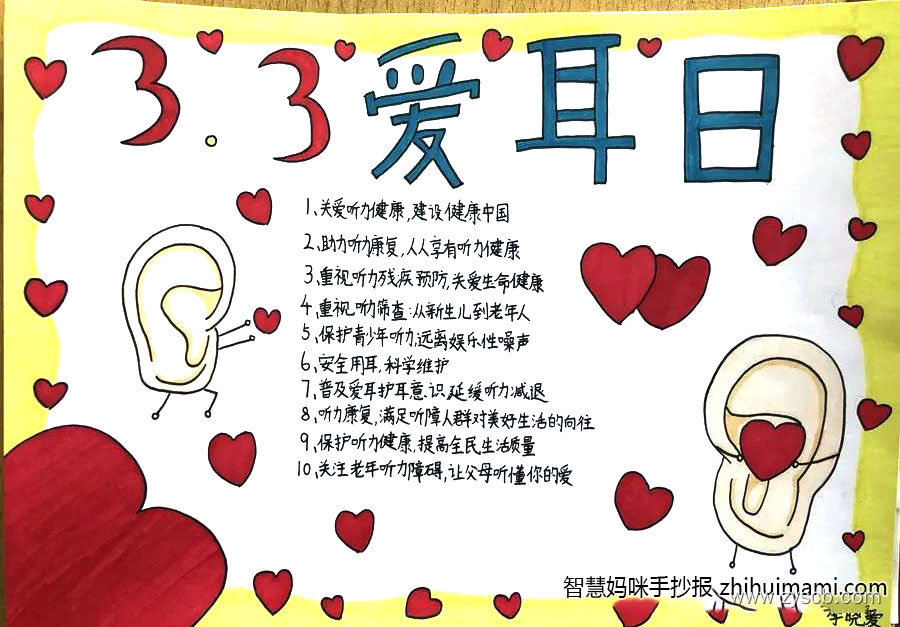 3.3爱耳日
1、关爱听力健康,建设健康中国
2、助力听力康复,人人享有听力健康
3、重视听力残疾预防,关爱生命健康
4、重视听力筛查:从新生儿到老年人
5、保护青少年听力,远离娱乐性噪声
6、安全用耳,科学维护
7、普及爱耳护耳意识,延缓听力减退
8、听力康复,满足听障人群对美好生活的向往
9、保护听力健康,提高全民生活质量
10、关注老年听力障碍,让父母听懂你的爱
智慧妈咪手抄报 zhihuimami.com
www.zyscb.com